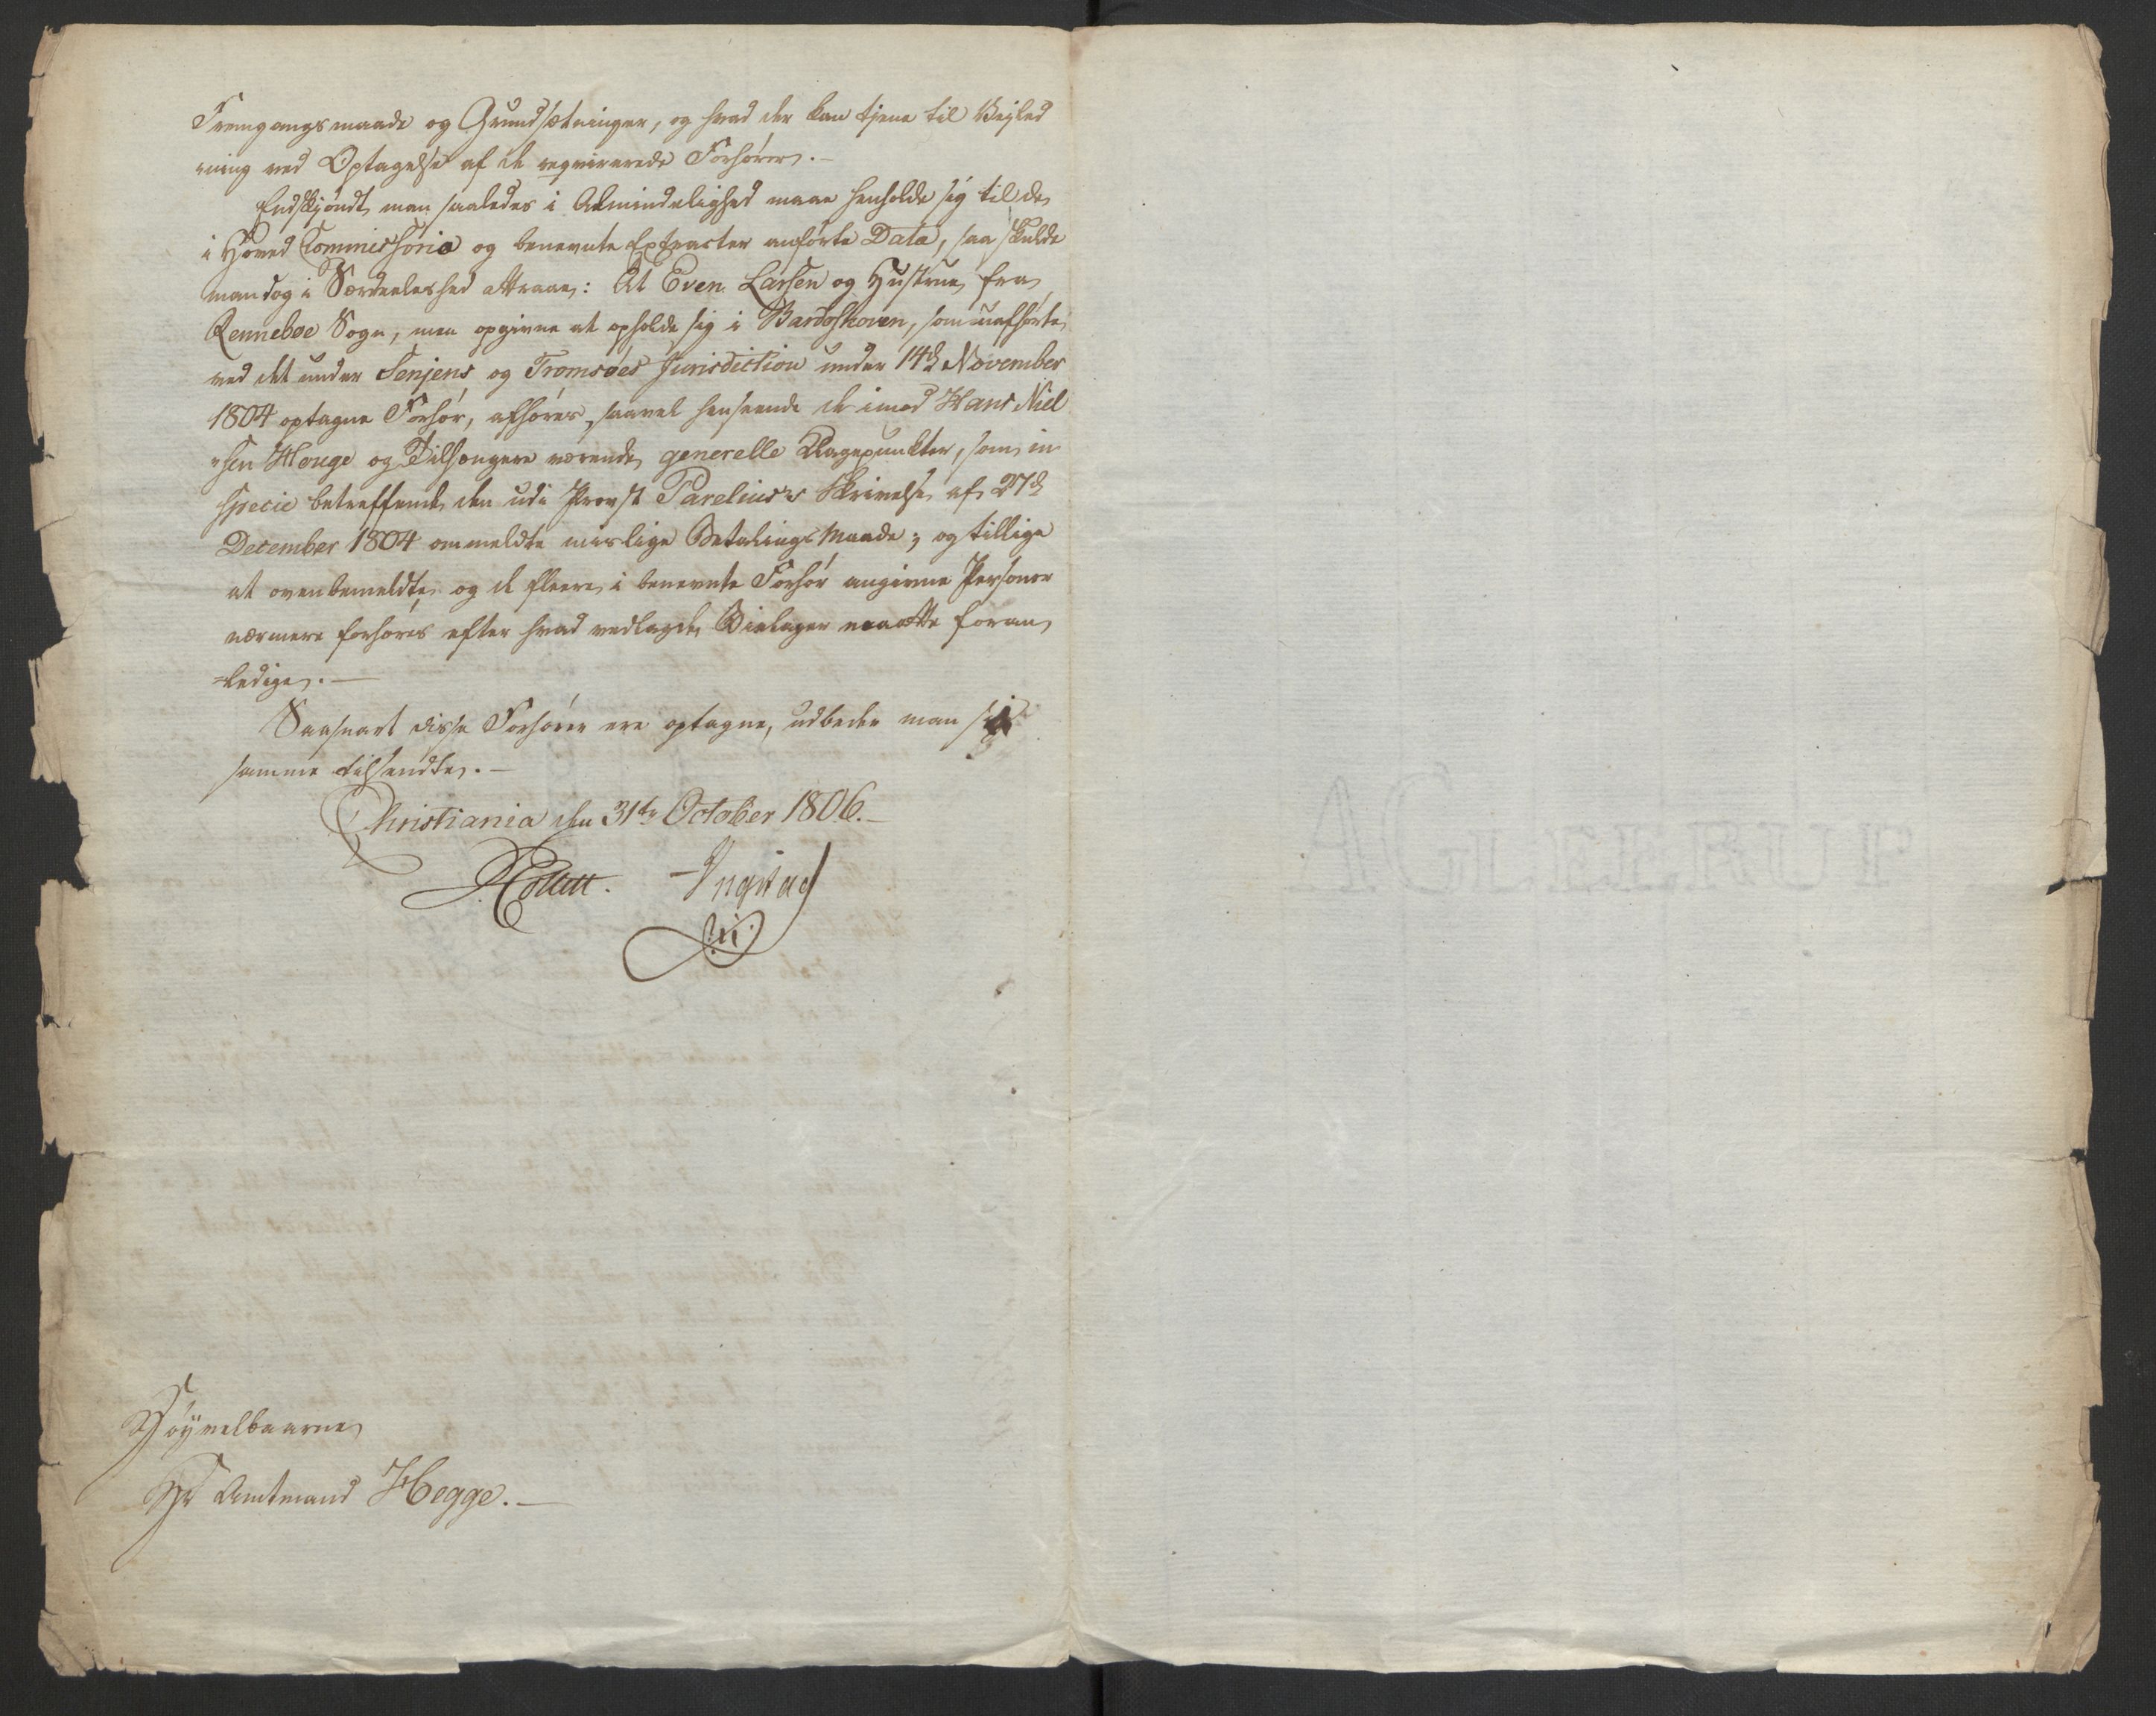 Fremgangsmaade og Grundsætninger, og hvad der kan tjene til Vejled
"ning ved Optagelse af de reqvirerede Forhører.-
Endskjøndt man saaledes i Almindelighed maae henholde sig til de
i Hoved Commissoria og benevnte Extracter anførte Data, saa skulde
man dog i Særdeleshed attraae: At Even Larsen og Hustrue fra
Renneboe Sogn, men opgivne at opholde sig i Bardoskoven, som uafhørte
ved det under Senjens og Tromsøes Jurisdiction under 14d November
1804 optagne Forhør, afhøres, saavel henseende de imod Hans Niel
"sen Houge og Tilhængere værende generelle Klagepunkter, som in
specie betreffende den udi Provst Parelius's Skrivelse af 27d
December 1804 ommeldte mislige Betalings Maade; og tillige
at ovenbemeldte og de fleere i benevnte Forhør angivne Personer
nærmere forhøres efter hvad vedlagde Bielager maatte foran
=ledige.-
Saasnart disse Forhører ere optagne, udbeder man sig
samme tilsendte.-
Christiania den 31te October 1806.-
J. Collett. Ingstad
Høyvelbaarne
Hr Amtmand Hegge.-